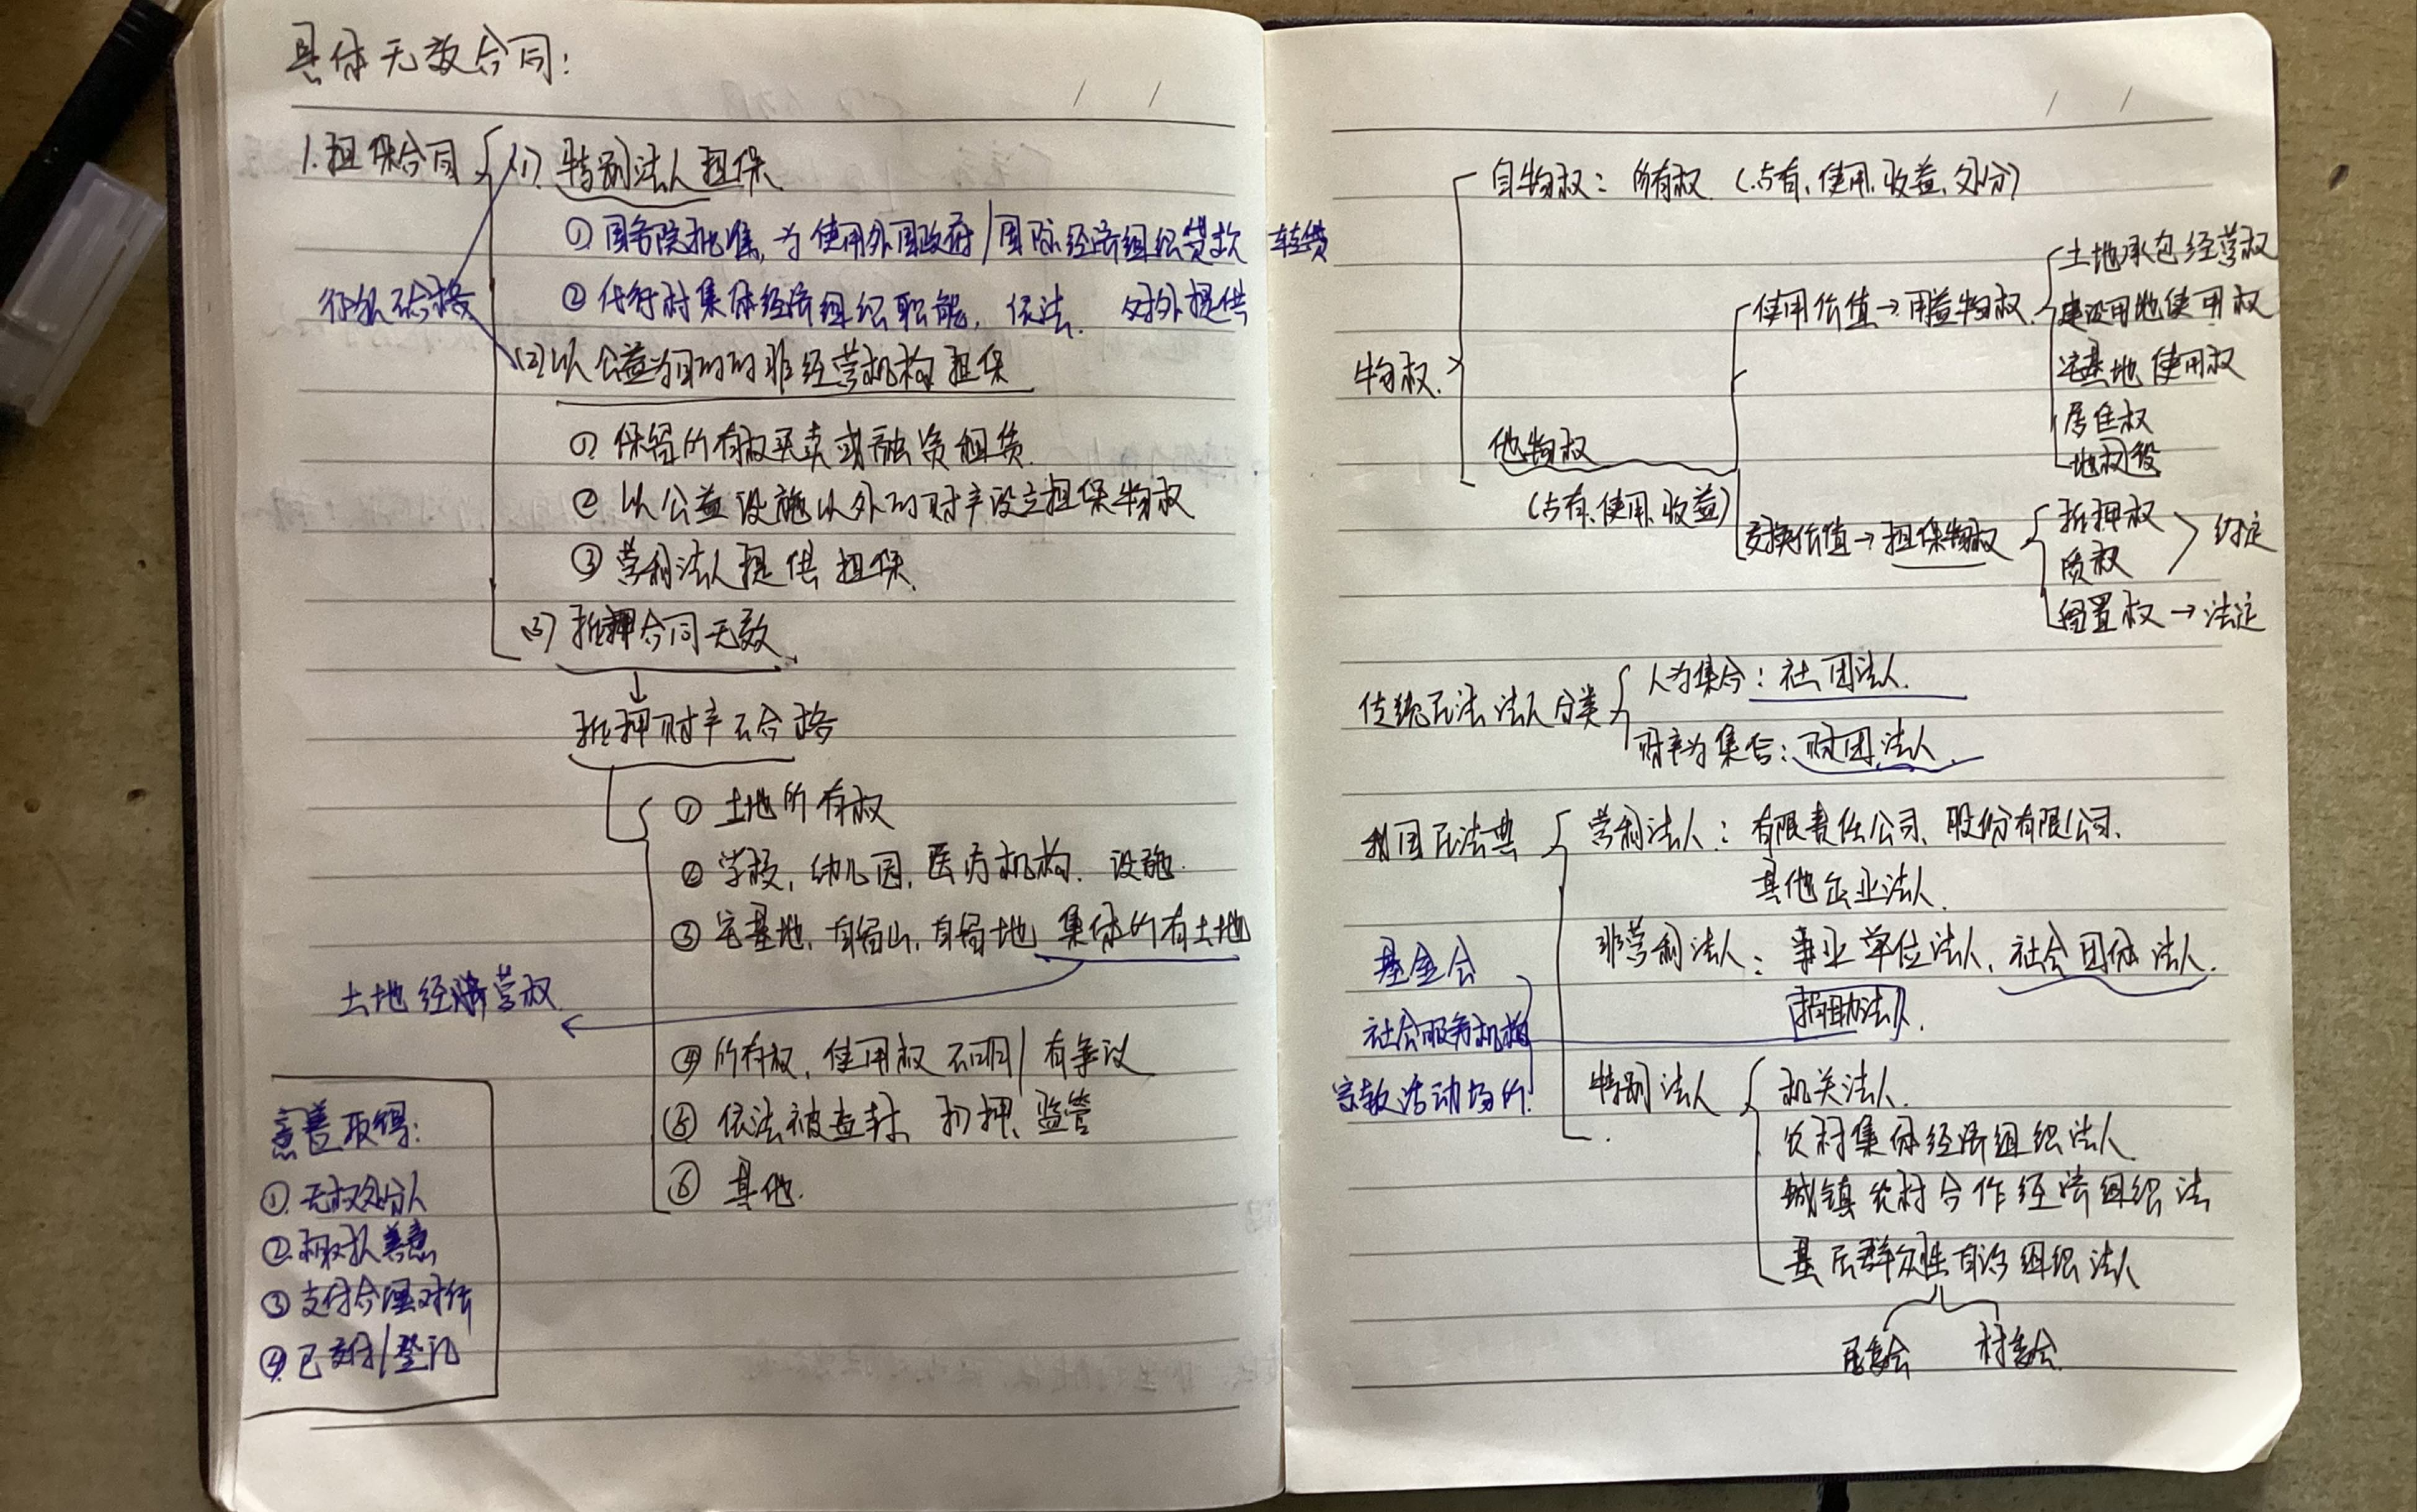 具体无效合同:
1.担保合同
(1) 特别法人担保
① 国务院批准, 为使用外国政府/国际经济组织贷款 转贷
② 代行村集体经济组织职能, 依法. 对外提供
不合格
(2)以公益为目的的非经营机构担保
① 保留所有权买卖或融资租赁.
② 以公益设施以外的财产设立担保物权
③ 营利法人提供担保.
(3) 抵押合同无效.
↓
抵押财产不合格
① 土地所有权
② 学校, 幼儿园, 医疗机构. 设施.
③ 宅基地, 自留山, 自留地 集体所有土地
土地经营权
④ 所有权, 使用权 不明/有争议
⑤ 依法被查封、扣押、监管
⑥ 其他.
善意取得:
① 无权处分人
② 相对人善意
③ 支付合理对价
④ 已交付/登记
物权.
自物权: 所有权 (占有, 使用, 收益, 处分)
他物权
(占有, 使用, 收益)
使用价值→用益物权
土地承包经营权
建设用地使用权
宅基地使用权
居住权
地役权
交换价值→担保物权
抵押权
质权
约定
留置权→法定
传统民法法人分类
人为集合: 社团法人.
财产为集合: 财团法人.
我国民法典
营利法人: 有限责任公司、股份有限公司、
其他企业法人.
非营利法人: 事业单位法人, 社会团体法人.
捐助法人.
基金会
社会服务机构
宗教活动场所.
特别法人
机关法人.
农村集体经济组织法人
城镇农村合作经济组织法
基层群众性自治组织法人
居委会 村委会.